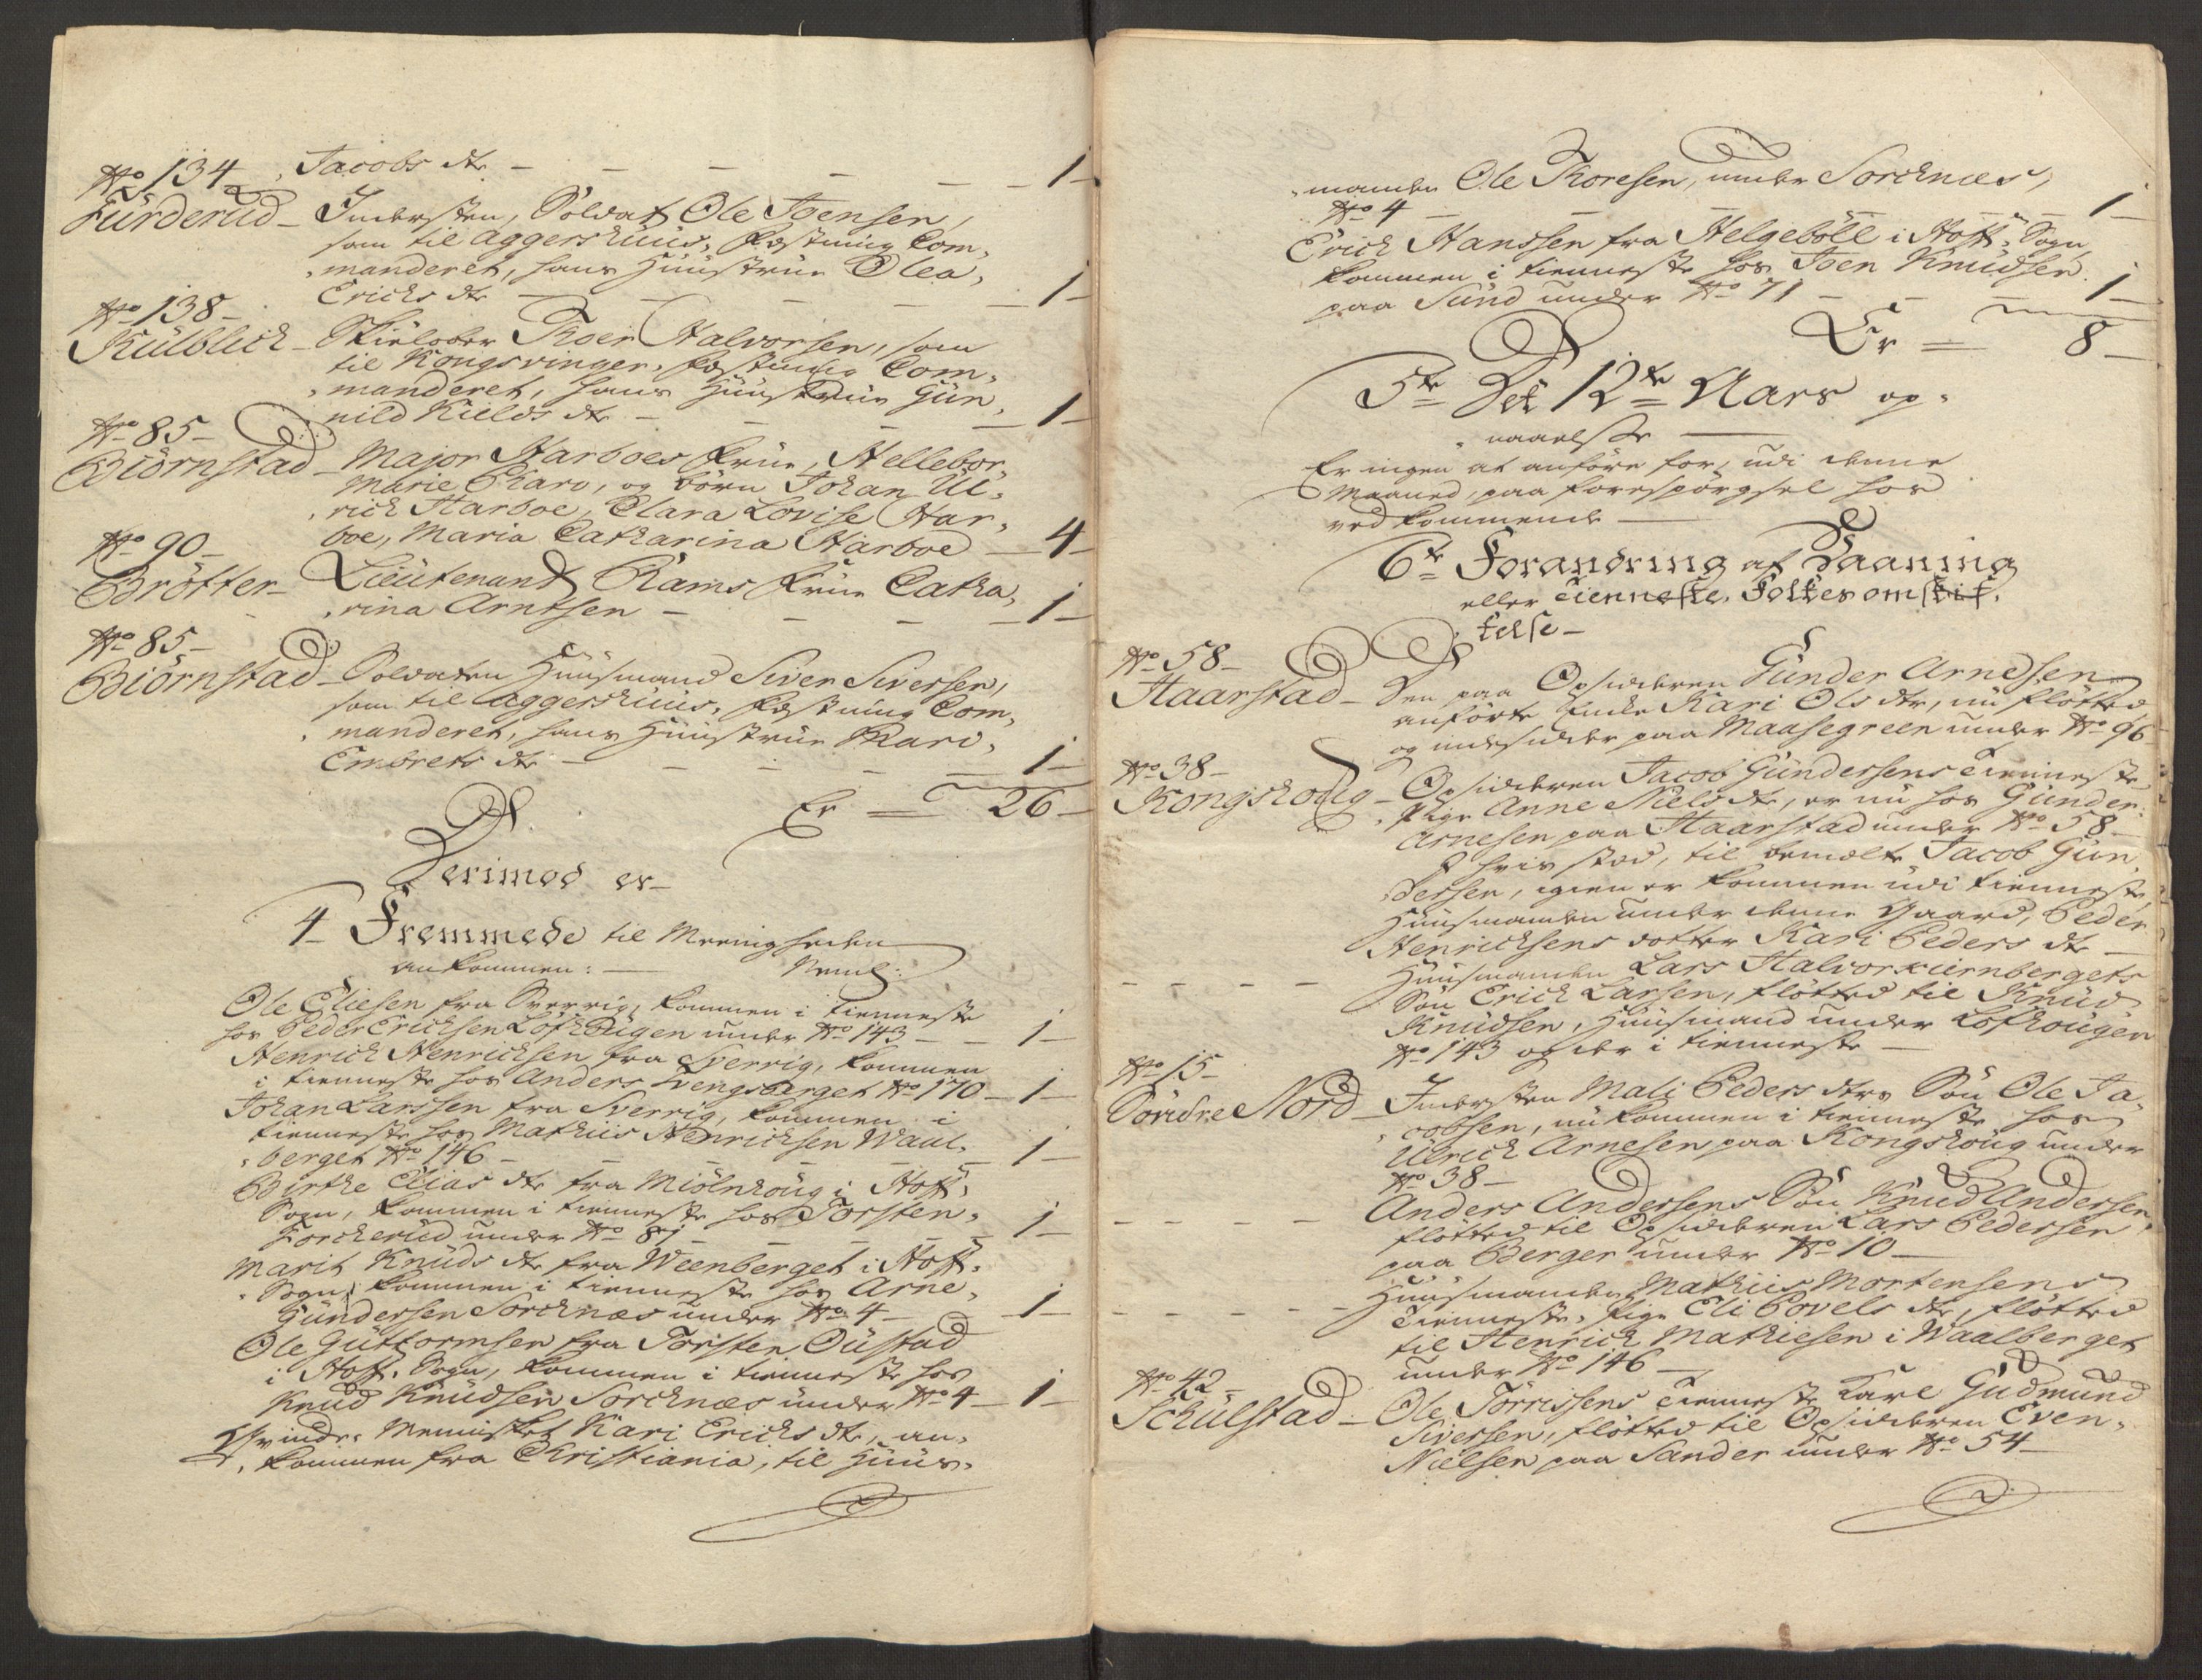 No 134 Jacobs dtr — 1 —
Fürderud — Indersten, Soldat Ole Joensen,
som til Aggershuus, Festning Com,
manderet, hans Huustrue Olea,
Ericks dtr — 1 —
No 138 —
Külblick — Skielober Thoer Halvorsen, som
til Kongsvinger, Festning Com,
manderet, hans Huustrue Gün,
nild Kields dtr — 1 —
No 85 —
Biörnstad — Major Harboes Frue, Hellebor,
Marie Charo, og börn Johan Ul,
rich Harboe, Clara Lovise Har,
boe, Maria Catharina Harboe — 4 —
No 90 —
Brötter — Lieutenant Rams Frue Catha,
rina Arntsen — 1 —
No 85 —
Biörnstad — Soldaten Huusmand Siver Siversen,
som til Aggershuus, Festning Com,
manderet, hans Huustrue Mari,
Embrets dtr — 1 —
Er = 26 —
Derimod er —
4 Fremmede til Menigheden
ankommen: — Neml:
Ole Eliesen fra Sverrig, kommen i tienneste
hos Peder Ericksen Löfhougen under No 143 — 1 —
Henrich Henrichsen fra Sverrig, kommen
i tienneste hos Anders Svengsberget No 170 — 1 —
Johan Larssen fra Sverrig, kommen i
tienneste hos Mathiis Henrichsen Waal,
berget No 146 — 1 —
Birthe Elias dtr fra Miölnhoug i Hoff,
Sogn, kommen i tienneste hos Torsten,
Forckerud under No 81 — 1 —
Marit Knuds dtr fra Weenberget i Hoff,
Sogn, kommen i tienneste hos Arne,
Gündersen Sorcknæs under No 4 — 1 —
Ole Güttormsen fra Torsten Dustad
i Hoff, Sogn, kommen i tienneste hos
Knud Knudsen Sorcknæs under No 4 — 1 —
Qvinde, Mennisket Kari Ericks dtr, an,
kommen fra Christiania, til Huus,
manden Ole Thoresen, under Sorcknæs,
No 4 — 1 —
Erich Hanssen fra Helgeböll i Hoff, Sogn,
kommen i tienneste hos Joen Knudsen
paa Sund under No 71 — 1 —
Er = 8 —
5te Det 12te Aars op,
naaelse —
Er ingen at anföre for, udi denne
Maaned, paa forespörgsel hos
vedkommende —
6te Forandring af Vaaning
eller Tienneste, Folkes omskif,
telse —
No 58 —
Haarstad — Den paa Opsidderen Günder Arnesen
anförte Enke Kari Ols dtr, nu flötted
og indsidder paa Maasegreen under No 96
No 38 —
Kongshoug — Opsidderen Jacob Gündersens Tienneste
Pige Anne Niels dtr, er nu hos Günder
Arnesen paa Haarstad under No 58 —
I hvis stæd, til bemelte Jacob Gün,
dersen, igien er kommen udi tienneste
Huusmanden under denne Gaard, Peder
Henricksens dotter Kari Peders dtr —
— — — — Huusmanden Lars Halvorkiernbergets
Sön Erich Larsen, flötted til Knud
Knudsen, Huusmand under Löfhougen
No 143 og der i tienneste —
No 15 —
Söndre Nord — Indersten Mali Peders dtrs Sön Ole Ja,
cobsen, nu kommen i tienneste hos
Ulrich Arnesen paa Kongshoug under
No 38 —
— — — — Anders Andersens Sön Knud Andersen,
flötted til Opsidderen Lars Pedersen
paa Berger under No 10 —
— — — — Huusmanden Mathiis Mortensens
Tienneste, Pige Eli Povels dtr, flötted
til Henrich Mathiesen i Waalberget
under No 146 —
No 42 —
Schülstad — Ole Törrissens Tienneste Karl Gudmund
Siversen, flötted til Opsidderen Even,
Nielsen paa Sander under No 54 —